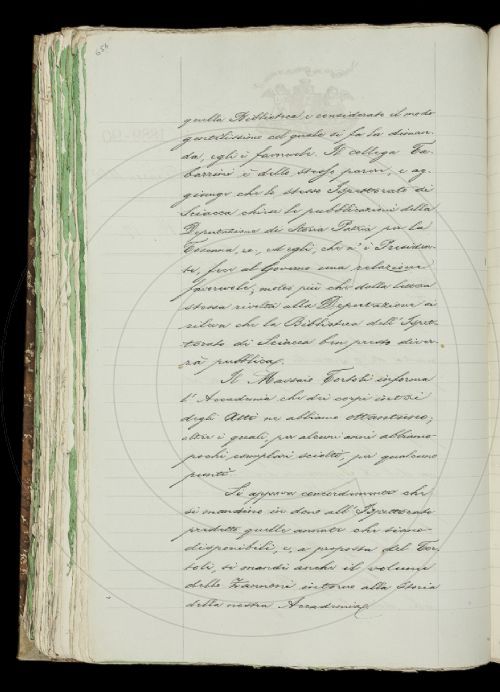 656
quella Biblioteca, e considerato il modo
gentilissimo col quale si fa la diman-
da, egli è favorevole. Il collega Ta-
barrini è dello stesso parere, e ag-
giunge che lo stesso Ispettorato di
Sciacca chiese le pubblicazioni della
Deputazione di Storia Patria per la
Toscana, ed egli, che n'è Presiden-
te, fece al Governo una relazione
favorevole; molto più che dalla lettera
stessa rivolta alla Deputazione si
rileva che la Biblioteca dell'Ispet-
torato di Sciacca ben presto diver-
rà pubblica.
Il Massaio Tortoli informa
l'Accademia che dei corpi interi
degli Atti ne abbiamo
oltre i quali, per alcuni anni abbiamo
pochi esemplari sciolti, per qualcuno
punti.
Si approva concordemente che
si mandino in dono all'Ispettorato
predetto quelle annate che siano
disponibili, e, a proposta del Tor-
toli, si mandi anche il volume
dello Zannoni intorno alla Storia
della nostra Accademia.